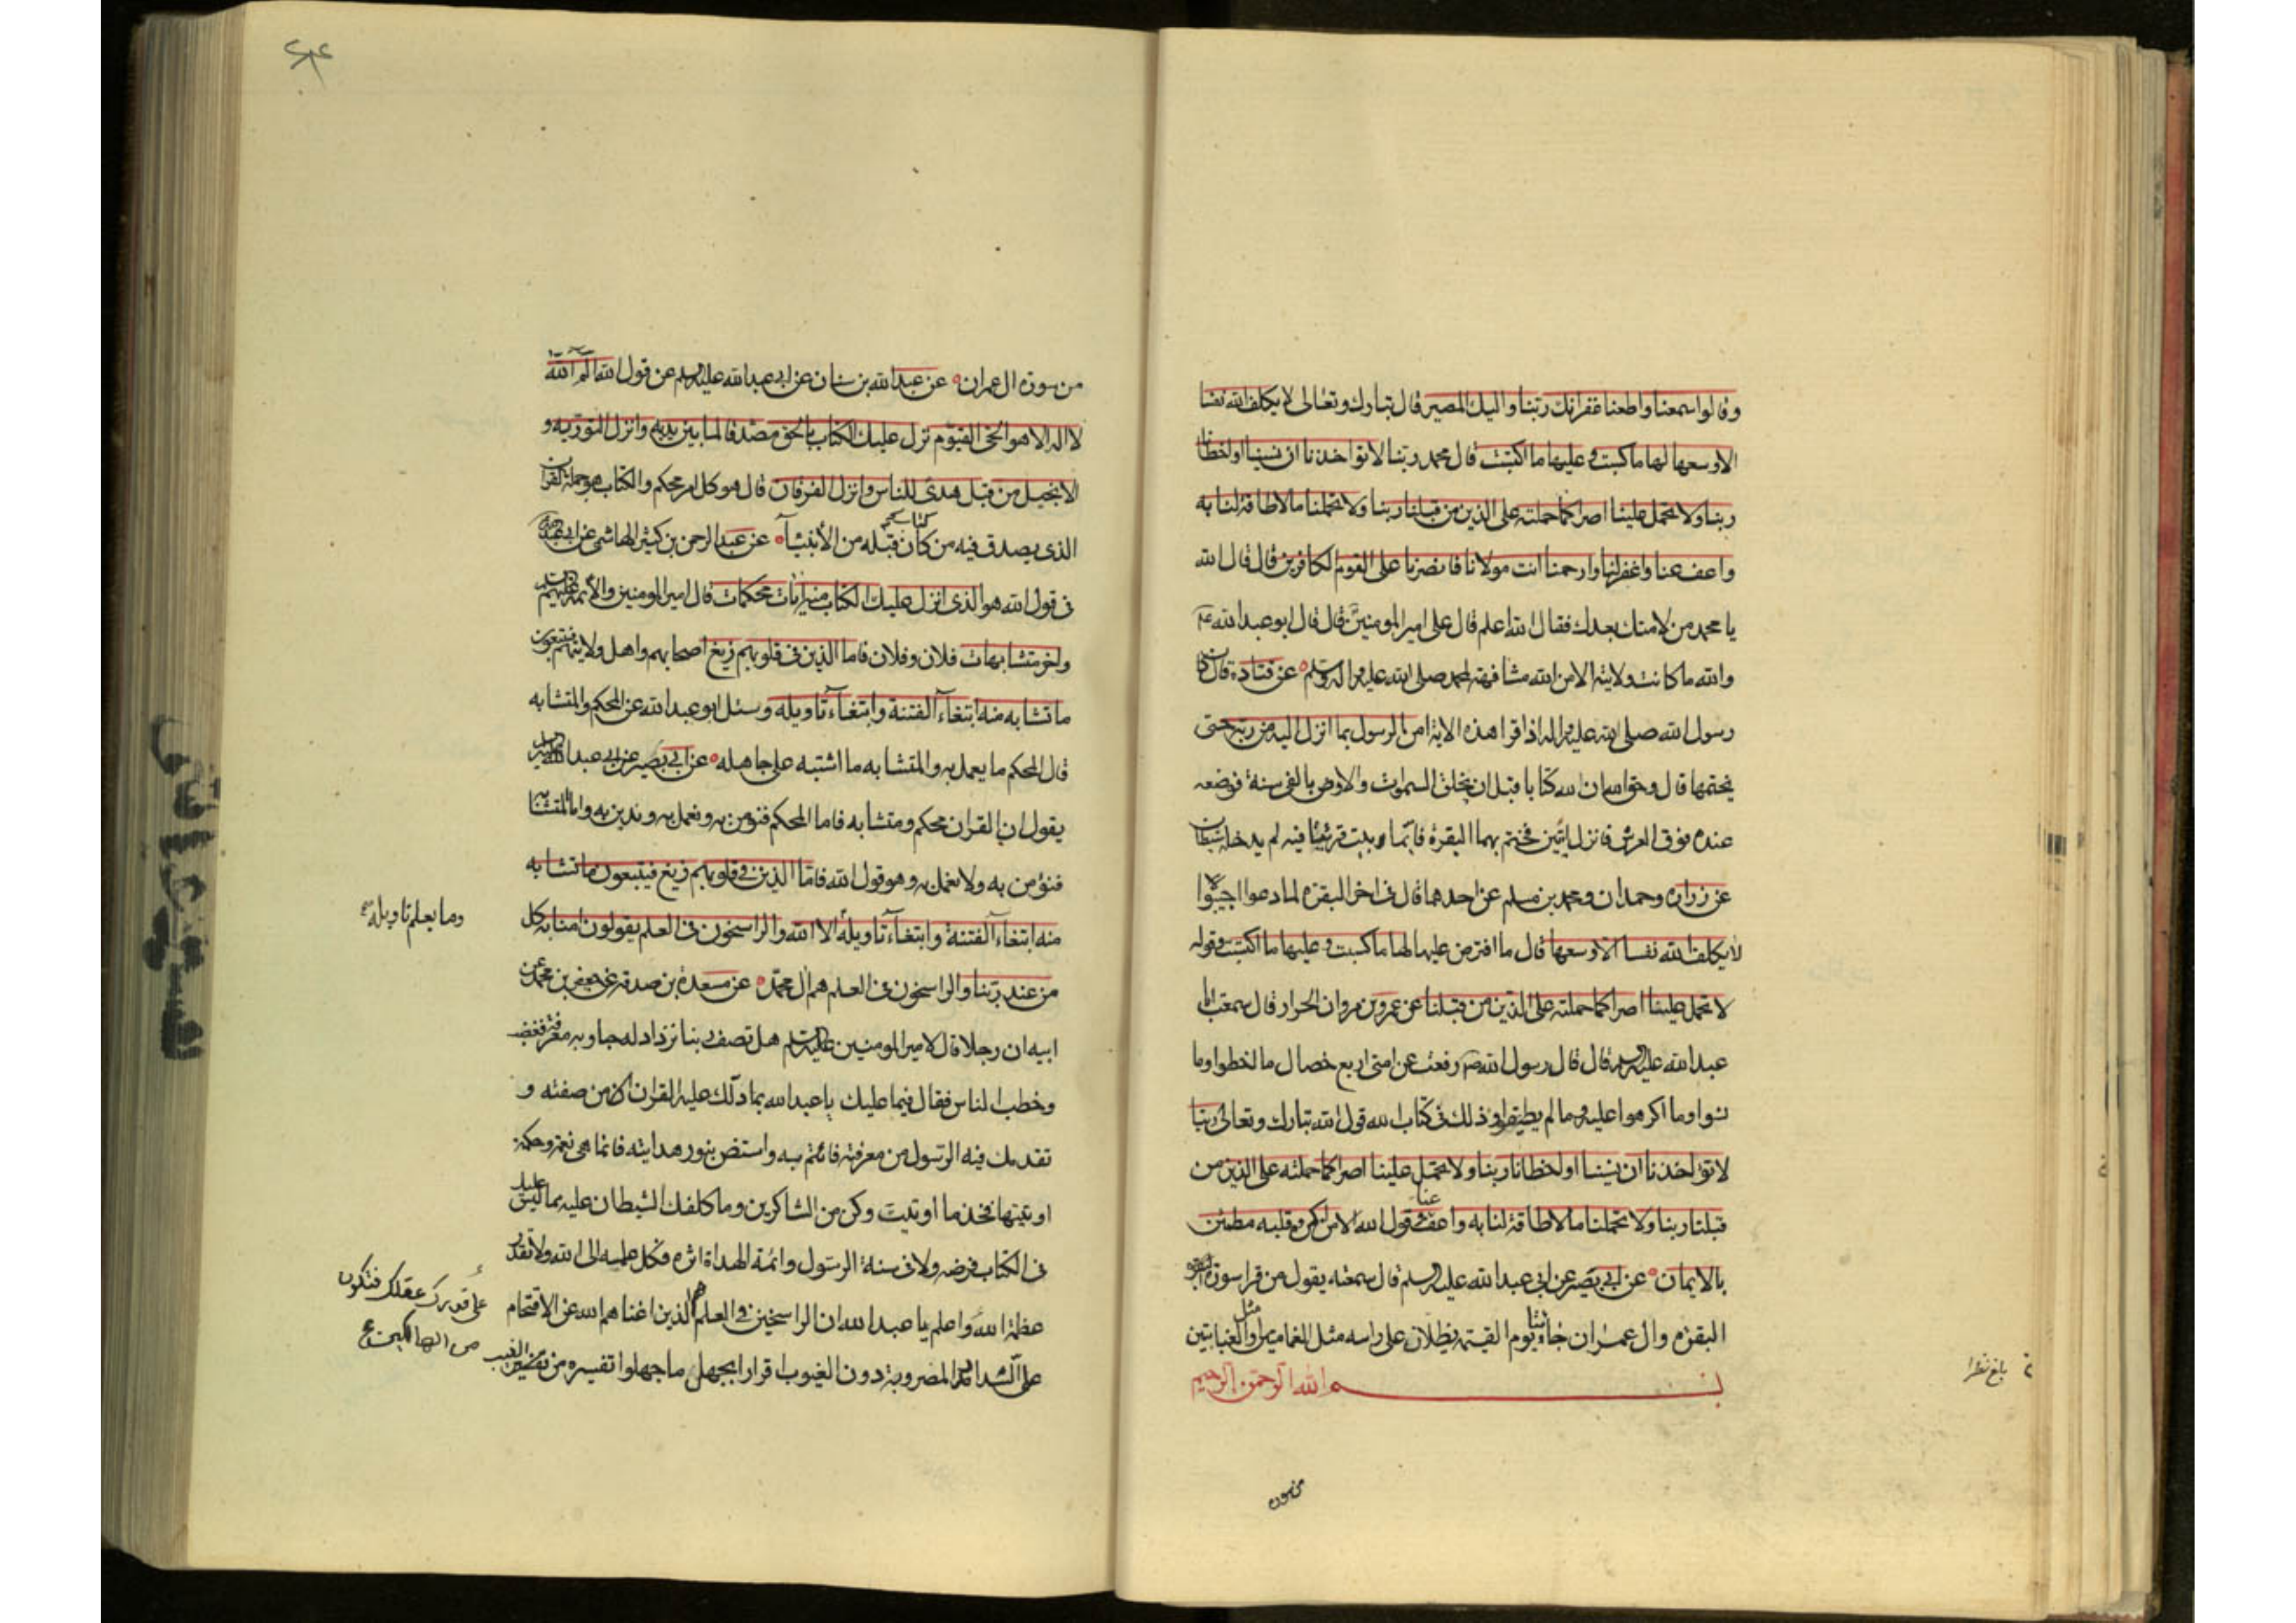 وقالوا سمعنا واطعنا غفرانك ربنا واليك المصير قال تبارك وتعالى لا يكلف الله نفسا
الا وسعها لها ما كسبت وعليها ما اكتسبت قال محمد ربنا لا تواخذنا ان نسينا او اخطانا
ربنا ولا تحمل علينا اصرا كما حملته على الذين من قبلنا ربنا ولا تحملنا ما لا طاقة لنا به
واعف عنا واغفر لنا وارحمنا انت مولانا فانصرنا على القوم الكافرين قال قال الله
يا محمد من لامتك بعدك فقال الله اعلم قال على امير المومنين قال قال ابو عبد الله ع
والله ما كانت ولايته الا من الله مشافهة لمحمد صلى الله عليه واله وسلم عن قتادة قال كان
رسول الله صلى الله عليه واله اذا قرا هذه الاية امن الرسول بما انزل اليه من ربه حتى
يختمها قال وحق الله ان لله كتابا قبل ان يخلق السموات والارض بالفى سنة فوضعه
عنده فوق العرش فانزل ايتين فختم بهما البقرة فايما بيت قرئتا فيه لم يدخله شيطان
عن زرارة وحمران ومحمد بن مسلم عن احدهما قال فى اخر البقرة لما دعوا اجيبوا
لا يكلف الله نفسا الا وسعها قال ما افترض عليها لها ما كسبت وعليها ما اكتسبت وقوله
لا تحمل علينا اصرا كما حملته على الذين من قبلنا عن عمرو بن مروان الخزاز قال سمعت ابا
عبد الله عليه السلم قال قال رسول الله ص رفعت عن امتى اربع خصال ما اخطوا وما
نسوا وما اكرهوا عليه وما لم يطيقوا وذلك فى كتاب الله قول الله تبارك وتعالى ربنا
لا تؤاخذنا ان نسينا او اخطانا ربنا ولا تحمل علينا اصرا كما حملته على الذين من
قبلنا ربنا ولا تحملنا ما لا طاقة لنا به واعف عنا وقول الله الا من اكره وقلبه مطمئن
بالايمان عن ابى بصير عن ابى عبد الله عليه السلم قال سمعته يقول من قرا سورة البقرة
البقرة وال عمران جاؤتا يوم القيمة يظلان على راسه مثل الغمامتين او مثل الغيابتين
بسم الله الرحمن الرحيم
من سورة
بلغ نظرا
من سورة ال عمران عن عبد الله بن سنان عن ابى عبد الله عليه السلم عن قول الله الم الله
لا اله الا هو الحى القيوم نزل عليك الكتاب بالحق مصدقا لما بين يديه وانزل التورية و
الانجيل من قبل هدى للناس وانزل الفرقان قال هو كل امر محكم والكتاب هو جملة القران
الذى يصدق فيه من كان قبله من الأنبياء عن عبد الرحمن بن كثير الهاشمى عن ابى عبد الله
فى قول الله هو الذى انزل عليك الكتاب منه ايات محكمات قال امير المومنين والأئمة عليهم السلم
واخر متشابهات فلان وفلان فاما الذين فى قلوبهم زيغ اصحابهم واهل ولايتهم فيتبعون
ما تشابه منه ابتغاء الفتنة وابتغاء تاويله وسئل ابو عبد الله عن المحكم والمتشابه
قال المحكم ما يعمل به والمتشابه ما اشتبه على جاهله عن ابى بصير عن ابى عبد الله عليه السلم
يقول ان القران محكم ومتشابه فاما المحكم فنؤمن به ونعمل به وندين به واما المتشابه
فنؤمن به ولا نعمل به وهو قول الله فاما الذين فى قلوبهم زيغ فيتبعون ما تشابه
منه ابتغاء الفتنة وابتغاء تاويله الا الله والراسخون فى العلم يقولون امنا به كل
وما يعلم تاويله
من عند ربنا والراسخون فى العلم هم ال محمد عن مسعدة بن صدقة عن جعفر بن محمد عن
ابيه ان رجلا قال لامير المومنين عليه السلم هل تصف ربنا نزداد له حبا وبه معرفة فغضب
وخطب الناس فقال فيما عليك يا عبد الله بما دلك عليه القران من صفته و
تقدمك فيه الرسول من معرفته فائتم به واستضئ بنور هدايته فانما هى نعمة وحكمة
اوتيتها فخذ ما اوتيت وكن من الشاكرين وما كلفك الشيطان عليه مما ليس عليك
فى الكتاب فرضه ولا فى سنة الرسول وائمة الهداة اثره فكل علمه الى الله ولا تقدر
عظمة الله واعلم يا عبد الله ان الراسخين فى العلم هم الذين اغناهم الله عن الاقتحام
على قدر عقلك فتكون من الهالكين
على السدد المضروبة دون الغيوب اقرارا بجهل ما جهلوا تفسيره من الغيب